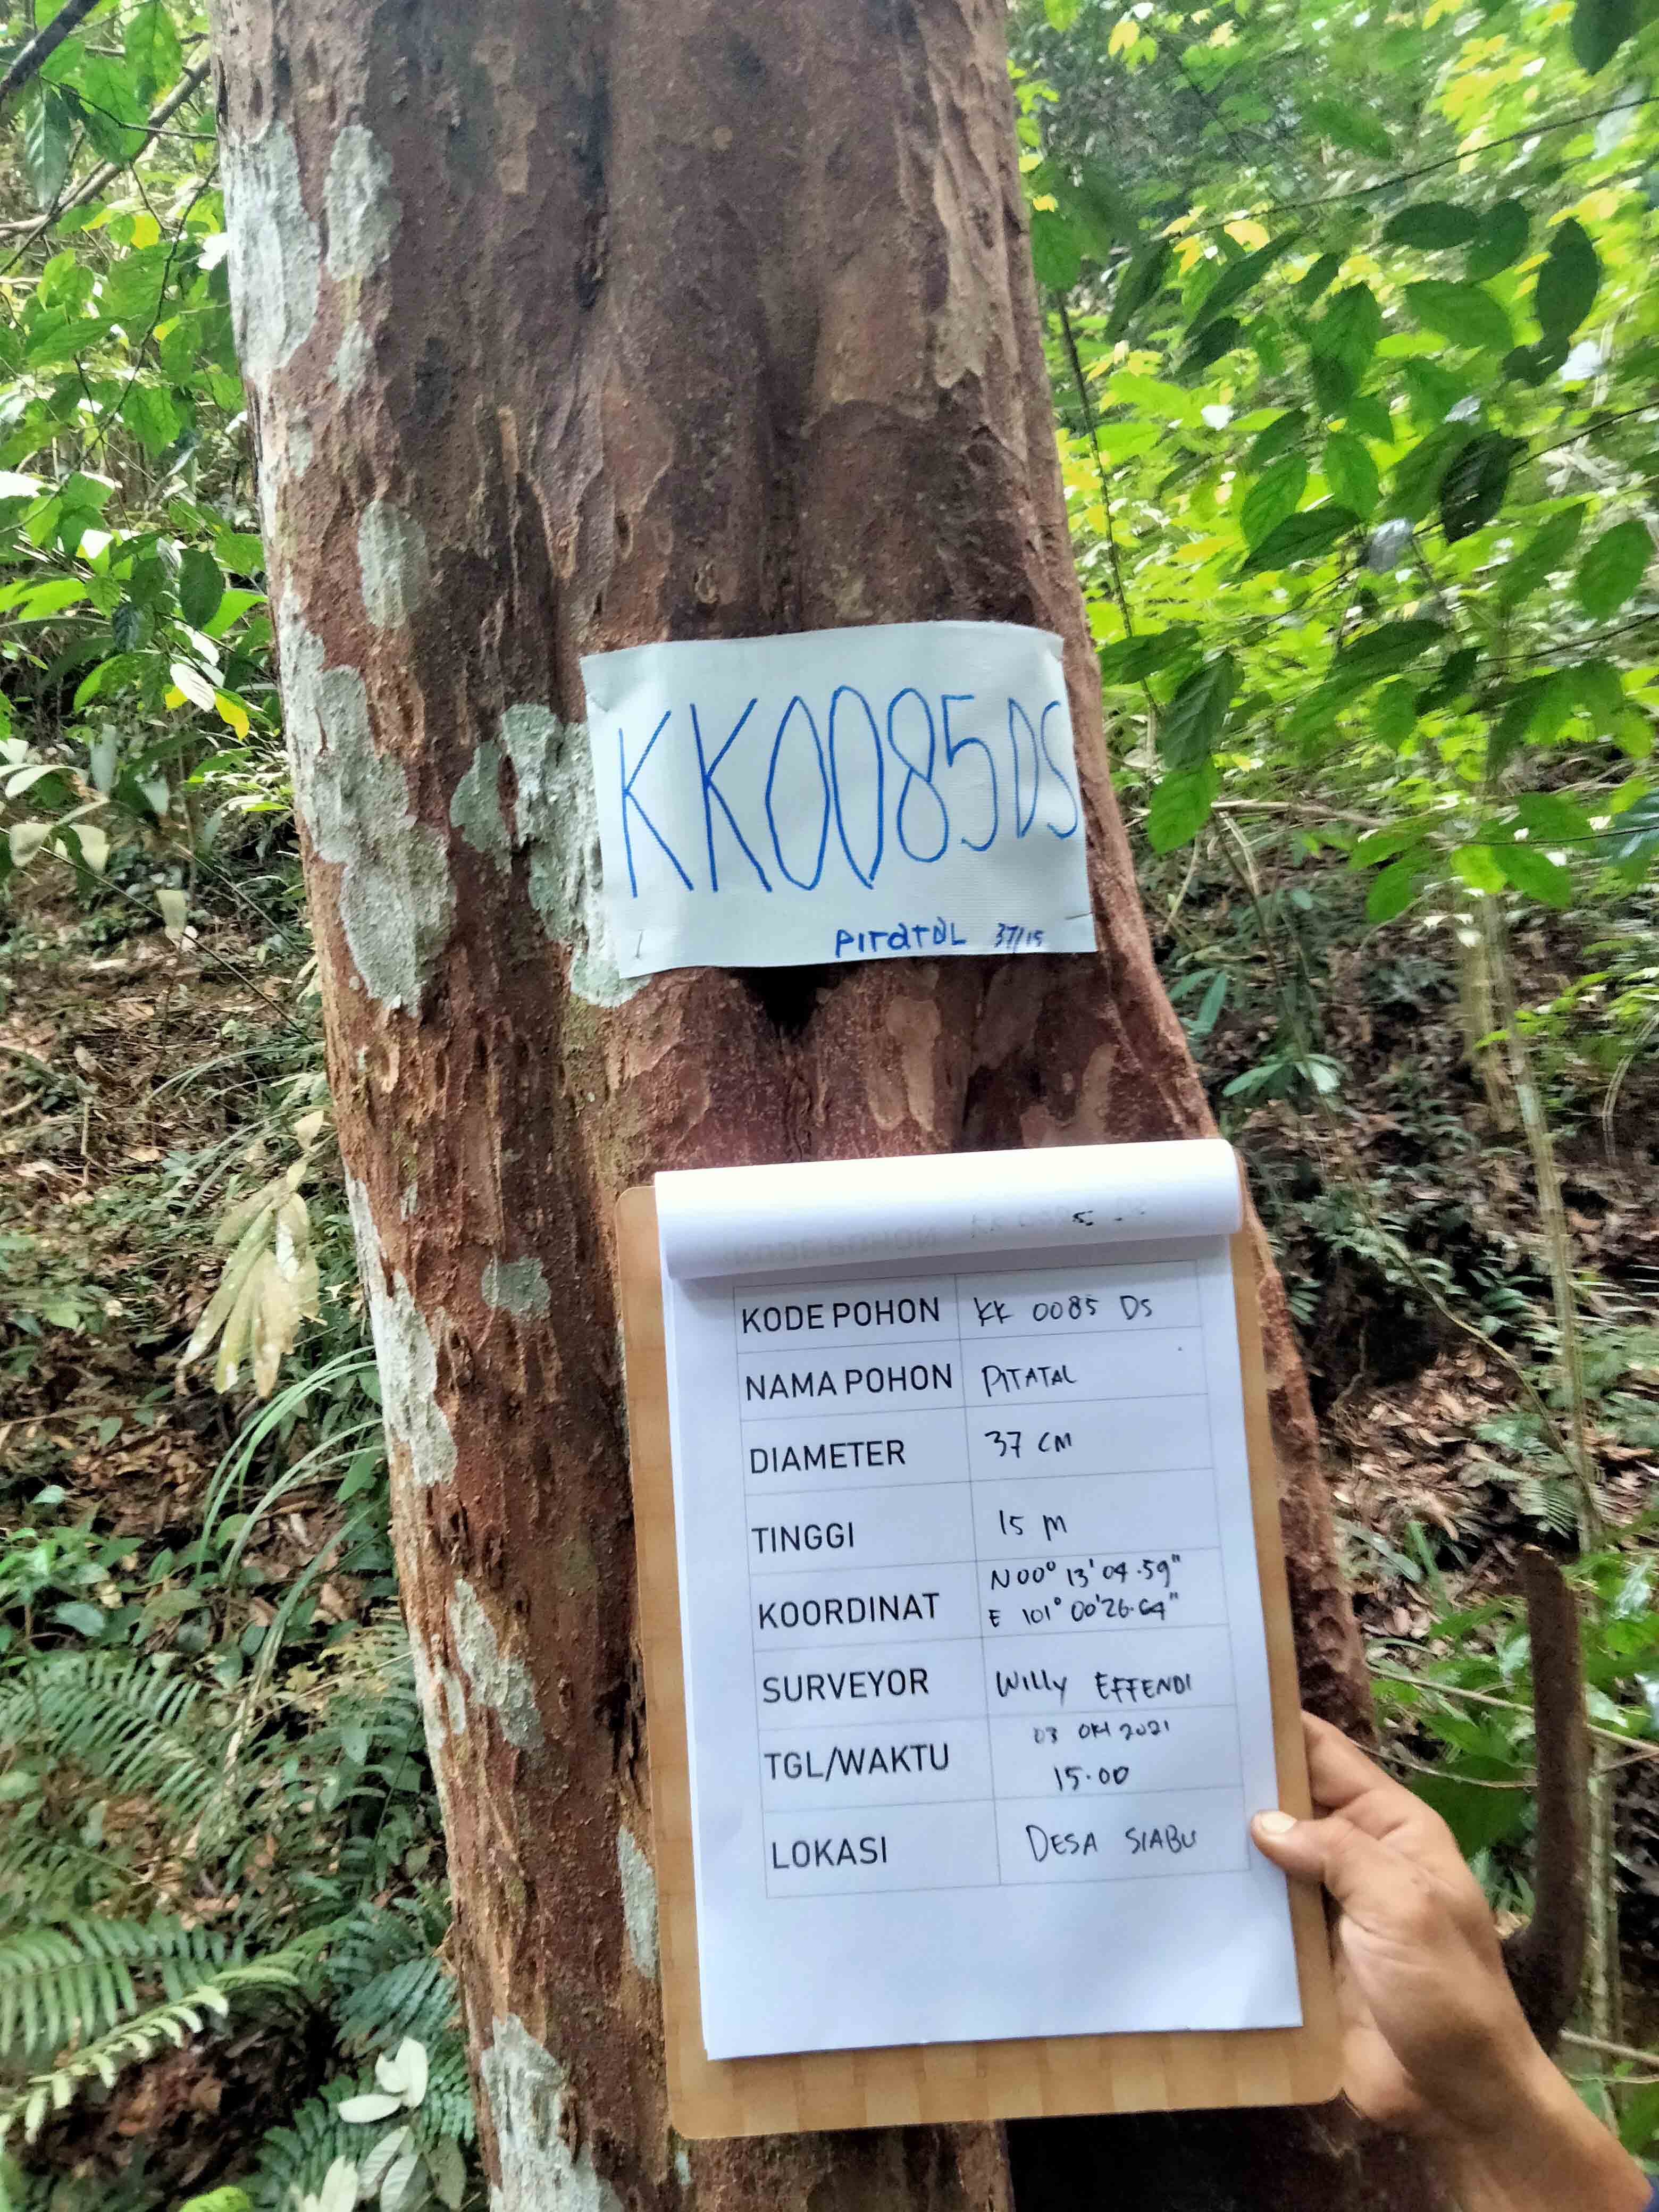 KK0085DS
PITATAL 37/15
KODE POHON KK 0085 DS
NAMA POHON PITATAL
DIAMETER 37 CM
TINGGI 15 M
KOORDINAT N 00° 13' 04.59"
E 101° 00' 26.64"
SURVEYOR Willy EFFENDI
TGL/WAKTU 03 Okt 2021
15.00
LOKASI DESA SIABU